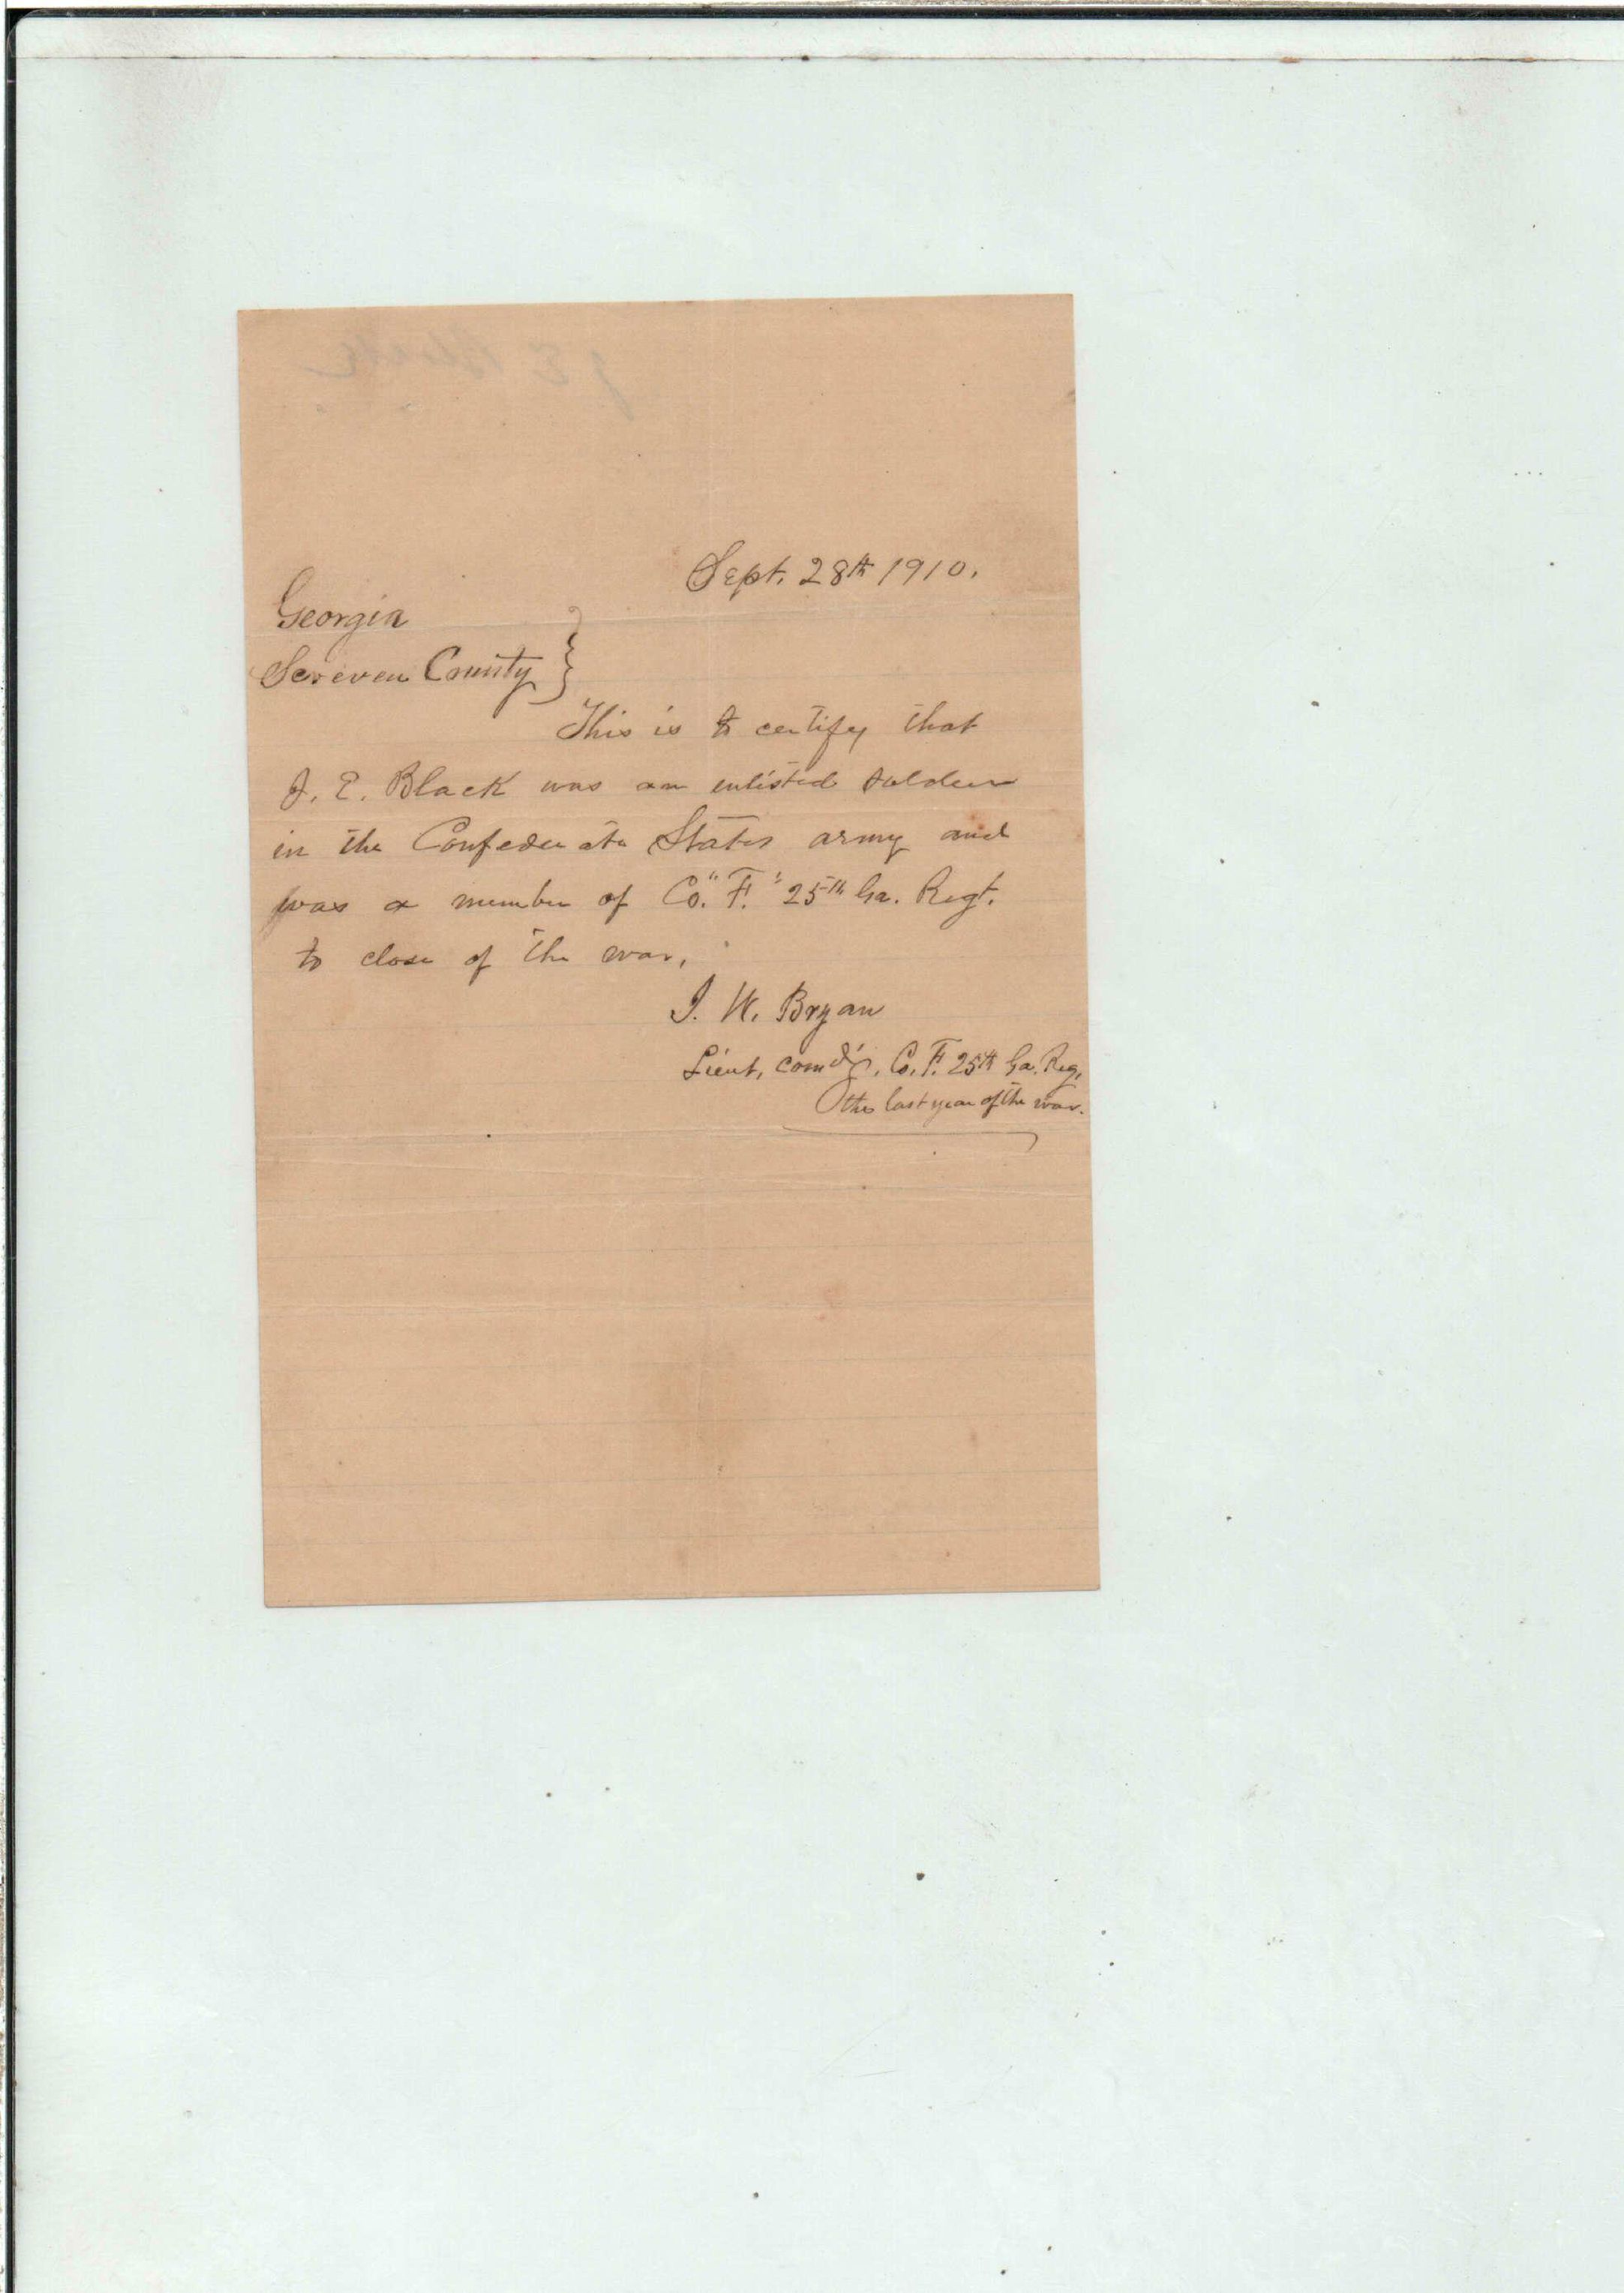 J E Black
Sept. 28th 1910.
Georgia
Screven County }
This is to certify that
J. E. Black was an enlisted soldier
in the Confederate States army and
was a member of Co. "F." 25th Ga. Regt.
to close of the war.
J. W. Bryan
Lieut, comd'g, Co. F. 25th Ga. Reg,
the last year of the war.